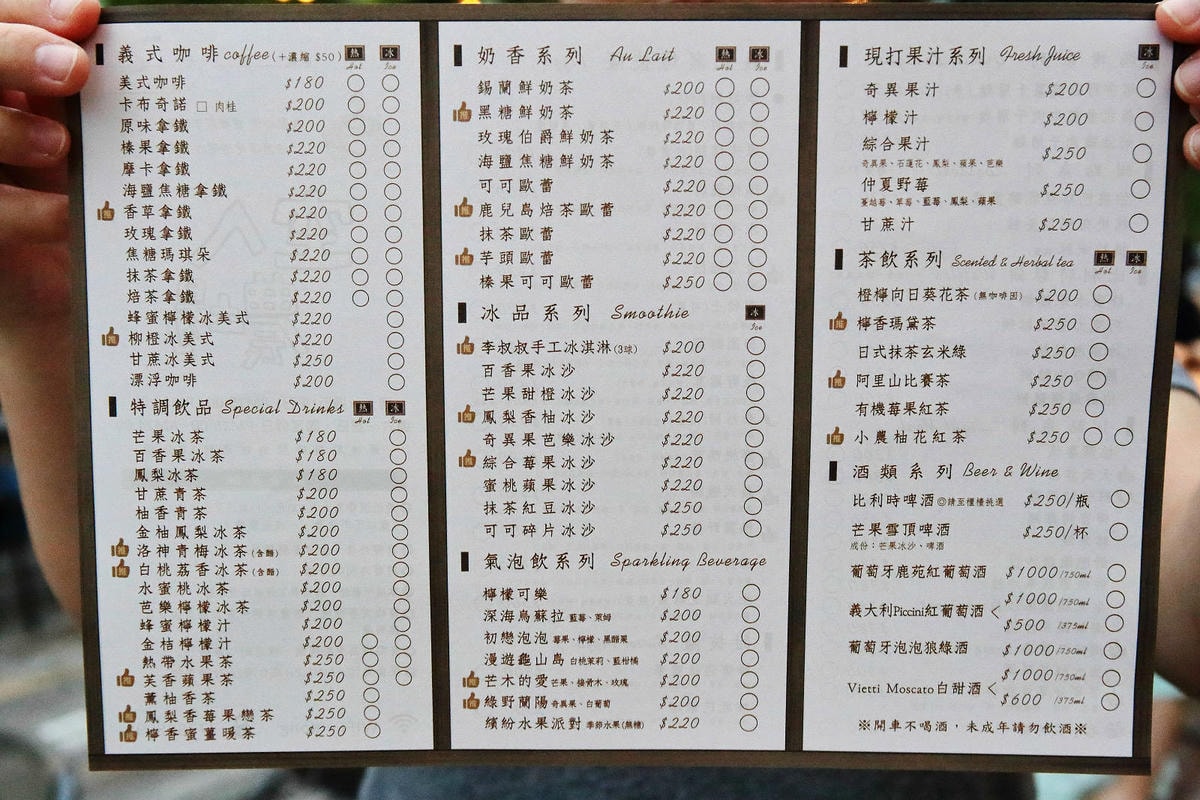 義式咖啡 coffee (+濃縮 $50) 熱 Hot 冰 Ice
美式咖啡 $180
卡布奇諾 □ 肉桂 $200
原味拿鐵 $200
榛果拿鐵 $220
摩卡拿鐵 $220
海鹽焦糖拿鐵 $220
推 香草拿鐵 $220
玫瑰拿鐵 $220
焦糖瑪琪朵 $220
抹茶拿鐵 $220
焙茶拿鐵 $220
蜂蜜檸檬冰美式 $220
推 柳橙冰美式 $220
甘蔗冰美式 $250
漂浮咖啡 $200
特調飲品 Special Drinks 熱 Hot 冰 Ice
芒果冰茶 $180
百香果冰茶 $180
鳳梨冰茶 $180
甘蔗青茶 $200
柚香青茶 $200
金柚鳳梨冰茶 $200
推 洛神青梅冰茶(含醋) $200
推 白桃荔香冰茶(含醋) $200
水蜜桃冰茶 $200
芭樂檸檬冰茶 $200
蜂蜜檸檬汁 $200
金桔檸檬汁 $200
熱帶水果茶 $250
推 芙香蘋果茶 $250
薰柚香茶 $250
推 鳳梨香莓果戀茶 $250
推 檸香蜜薑暖茶 $250
奶香系列 Au Lait 熱 Hot 冰 Ice
錫蘭鮮奶茶 $200
推 黑糖鮮奶茶 $220
玫瑰伯爵鮮奶茶 $220
海鹽焦糖鮮奶茶 $220
可可歐蕾 $220
推 鹿兒島焙茶歐蕾 $220
抹茶歐蕾 $220
推 芋頭歐蕾 $220
榛果可可歐蕾 $250
冰品系列 Smoothie 冰 Ice
推 李叔叔手工冰淇淋(3球) $200
百香果冰沙 $220
芒果甜橙冰沙 $220
推 鳳梨香柚冰沙 $220
奇異果芭樂冰沙 $220
推 綜合莓果冰沙 $220
蜜桃蘋果冰沙 $220
抹茶紅豆冰沙 $250
可可碎片冰沙 $250
氣泡飲系列 Sparkling Beverage
檸檬可樂 $180
深海烏蘇拉 藍莓、萊姆 $200
初戀泡泡 莓果、檸檬、黑醋栗 $200
漫遊龜山島 白桃茉莉、藍柑橘 $200
推 芒木的愛 芒果、接骨木、玫瑰 $200
推 綠野蘭陽 奇異果、白葡萄 $200
繽紛水果派對 季節水果(無糖) $220
現打果汁系列 Fresh Juice 冰 Ice
奇異果汁 $200
檸檬汁 $200
綜合果汁 $250
奇異果、石蓮花、鳳梨、蘋果、芭樂
仲夏野莓 $250
蔓越莓、草莓、藍莓、鳳梨、蘋果
甘蔗汁 $250
茶飲系列 Scented & Herbal tea 熱 Hot 冰 Ice
橙檸向日葵花茶(無咖啡因) $200
推 檸香瑪黛茶 $250
日式抹茶玄米綠 $250
推 阿里山比賽茶 $250
有機莓果紅茶 $250
推 小農柚花紅茶 $250
酒類系列 Beer & Wine
比利時啤酒 ◎請至櫃檯挑選 $250/瓶
芒果雪頂啤酒 $250/杯
成份：芒果冰沙、啤酒
葡萄牙鹿苑紅葡萄酒 $1000/750ml
義大利Piccini紅葡萄酒 < $1000/750ml
$500 /375ml
葡萄牙泡泡狼綠酒 $1000/750ml
Vietti Moscato白甜酒 < $1000/750ml
$600 /375ml
※開車不喝酒，未成年請勿飲酒※